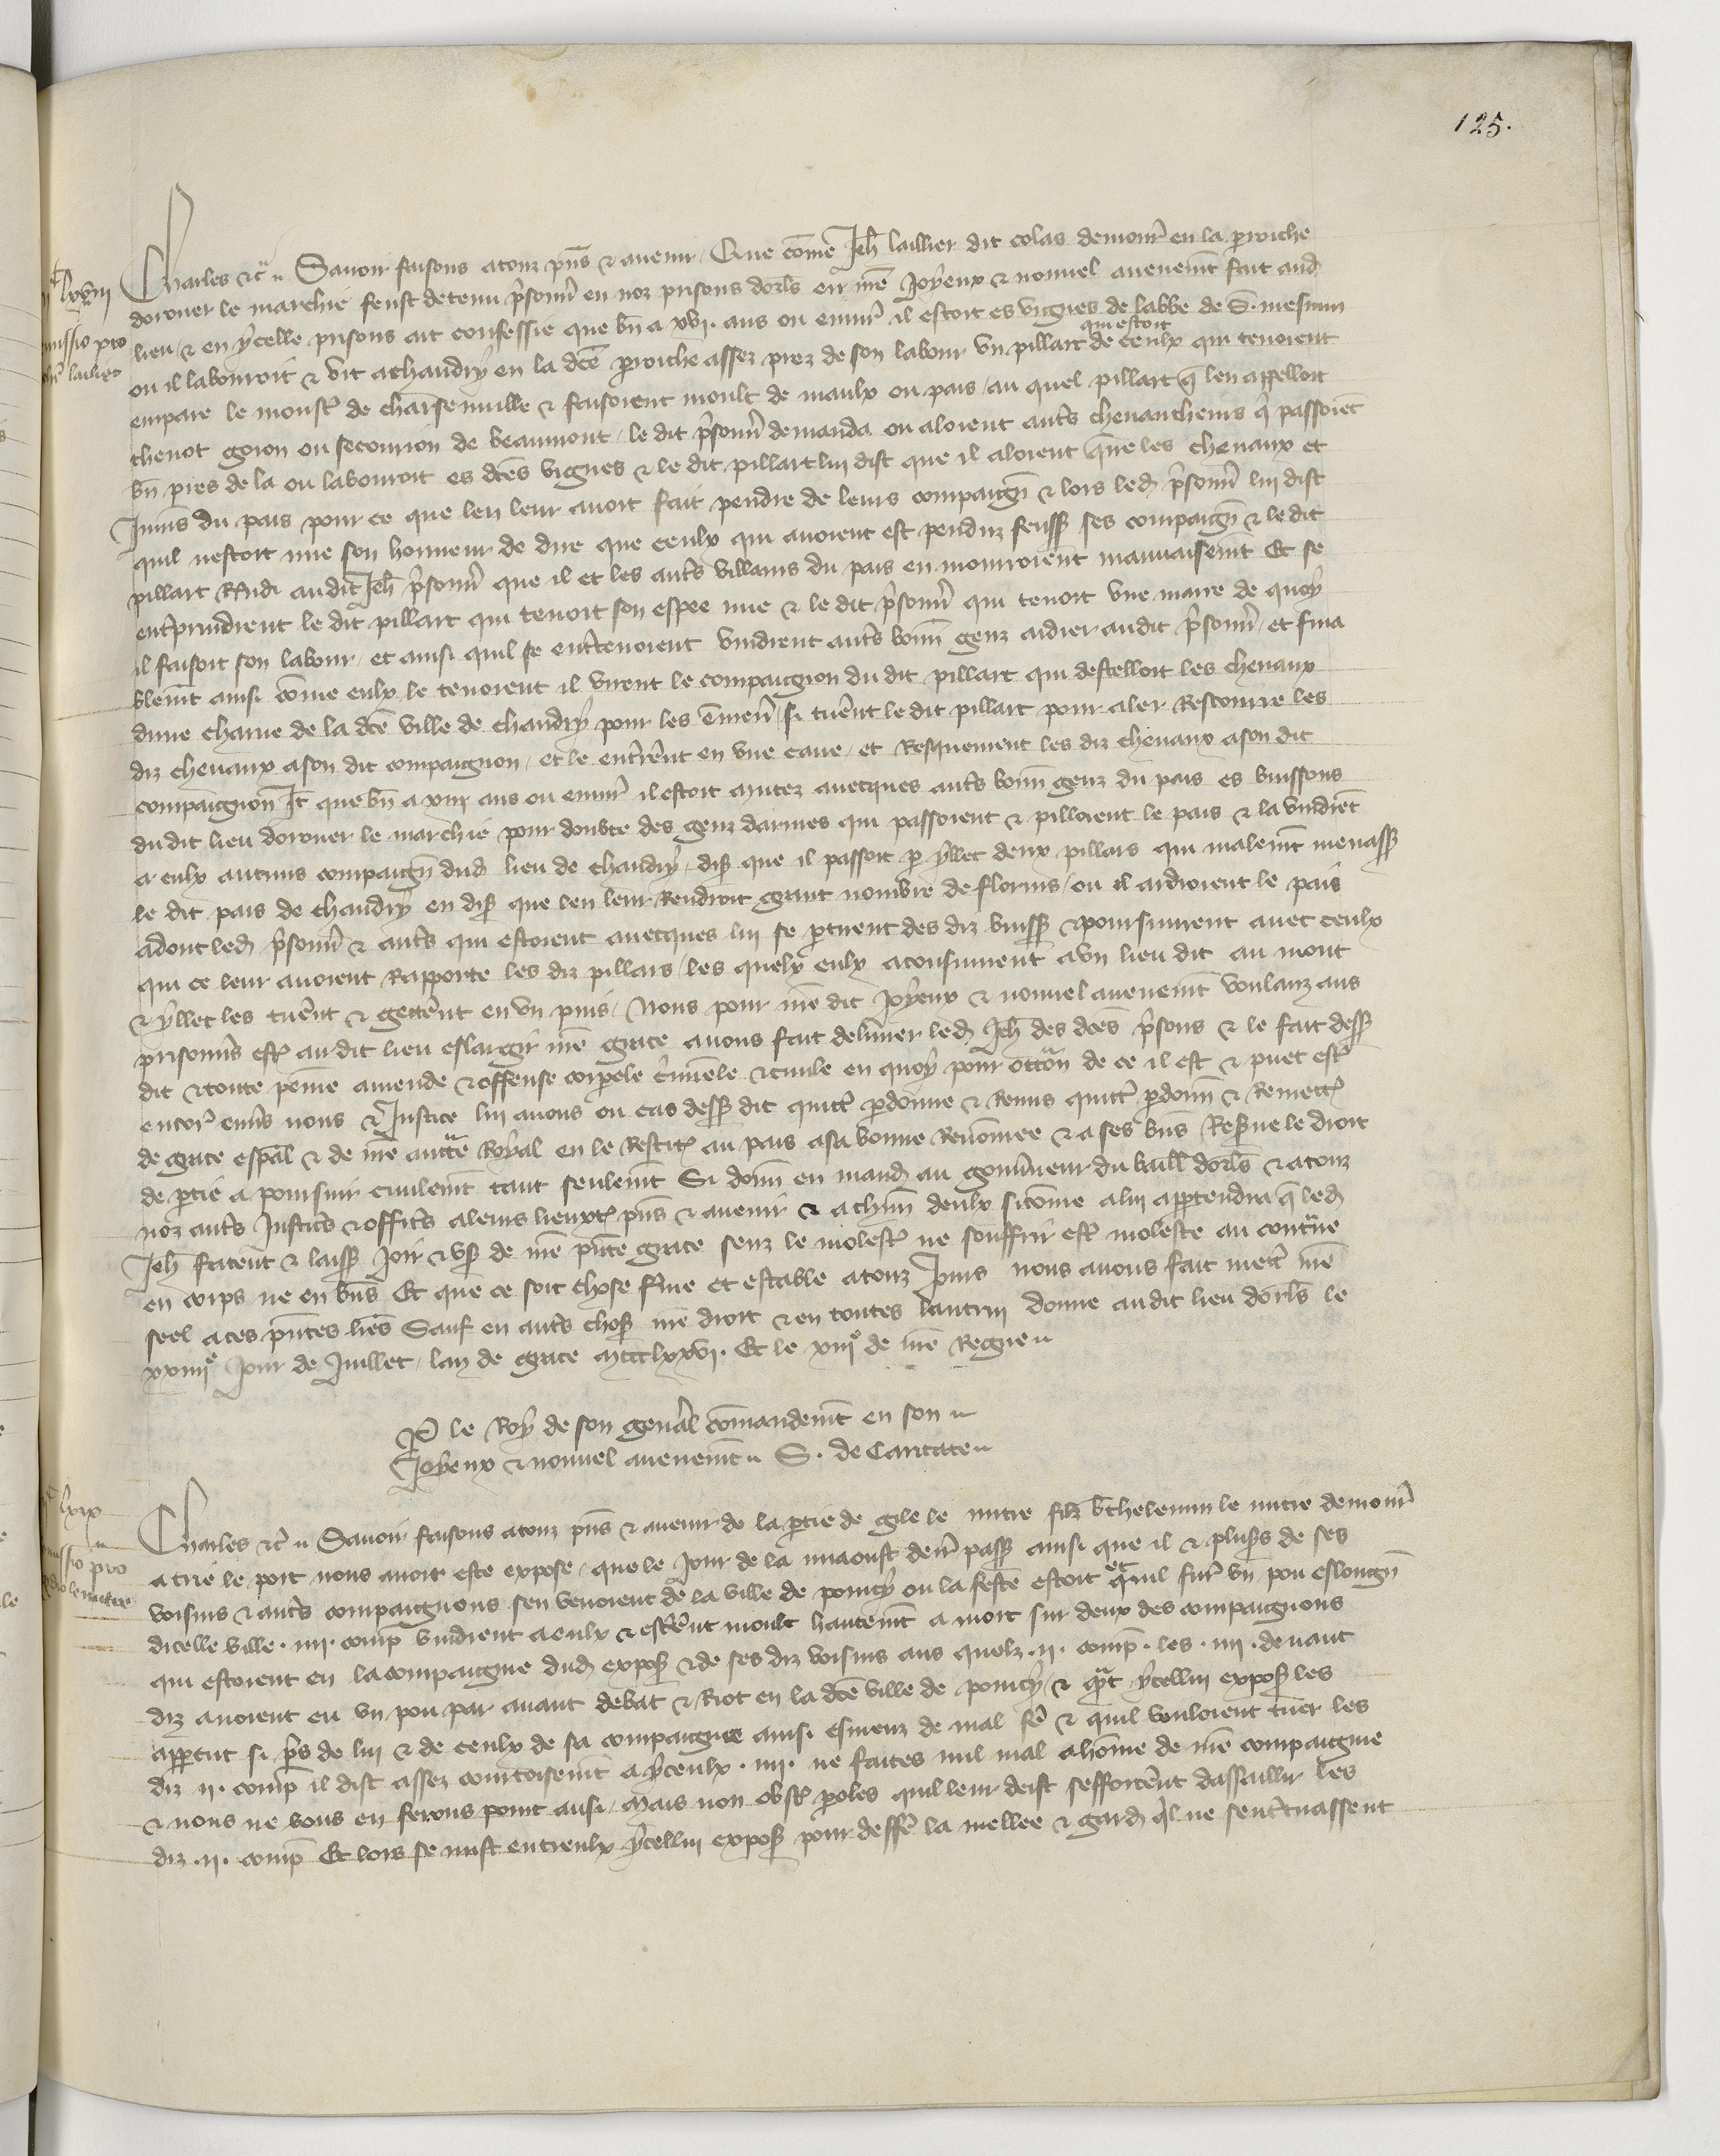 125.
lxviii
missio pro
Jeh laillier
Charles etc. Savoir faisons a touz pñs & avenir Que cõme Jeh laillier dit colas demour en la p̃roiche
dorouer le marchie feust detenu p̃sonñ en noz prisons dorls en nr̃e Joyeux & nouvel avenemt fait aud
lieu & en ycelle prisons ait confessie que bñ a xvi. ans ou envir il estoit es vignes de labbe de S. mesmin
ou il labouroit & vit a chaudry en la dc̃e p̃roiche assez prez de son labour un pillart qui estoit de ceulx qui tenoient
empare le moust de chaisenville & faisoient moult de maulx ou pais / au quel pillart q̃ len appelloit
thenot goion ou secourion de beaumont / le dit p̃sonñ demanda ou aloient auts chevaucheurs q̃ passoiẽt
bñ pres de la ou labouroit es dc̃es vignes & le dit pillart lui dist que il aloient querre les chevaux et
Jumens du pais pour ce que len leur avoit fait pendre de leurs compaigñ & lors led p̃sonñ lui dist
quil nestoit mie son honneur de dire que ceulx qui avoient est penduz feuss ses compaigñ & le dit
pillart Rñdi audit Jeh p̃sonñ que il et les auts villains du pais en mourroient mauvaisemt Et se
entp̃rindrent le dit pillart qui tenoit son espee nue & le dit p̃sonñ qui tenoit une marre de quoy
il faisoit son labour / et ainsi quil se entretenoient vindrent auts bonñ genz aidier audit p̃sonñ / et fina
blemt ainsi cõme eulx le tenoient il virent le compaignon du dit pillart qui destelloit les chevaux
dune charue de la dc̃e ville de chaudry pour les ẽmeñ / si tuerẽt le dit pillart pour aler Rescourre les
diz chevaux a son dit compaignon / et le enterrẽt en une cave / et Resquerrent les diz chevaux a son dit
compaignon It que bñ a xiiii ans ou envir il estoit mutez avecques auts bonñ genz du pais es buissons
du dit lieu dorouer le marchie pour doubte des genz darmes qui passoient & pilloient le pais & la vindrẽt
a eulx aucuns compaigñ dud lieu de chaudry / dis que il passoit p yllec deux pillars qui malemt menass
le dit pais de chaudry en dis que len leur Rendroit grant nombre de florins / ou il ardroient le pais
adont led p̃sonñ & auts qui estoient avecques lui se p̃tirent des diz buiss & poursuirent avec ceulx
qui ce leur avoient Rapporte les diz pillars / les quelx eulx aconsuirent a un lieu dit au mont
& yllec les tuẽrt & getẽrt en un puis / Nous pour nr̃e dit Joyeux & nouvel avenemt voulanz aus
prisonñs est audit lieu eslargir nr̃e grace avons fait delivrer led Jeh des dc̃es p̃sons & le fait dess
dit & toute peine amende & offense corp̃ele c̃minele & civile en quoy pour occõn de ce il est & puet est
encor envs nous & Justice lui avons ou cas dess dit quitt p̃donne & Remis quitt p̃donñ & Remett
de grace esp̃al & de nr̃e auctte Royal en le Restit au pais a sa bonne Renõmee & a ses bñs Res̃ve le droit
de p̃tie a poursuir civilemt tant seulemt Si donñ en mand au gouṽneur du baill dorls & a touz
noz auts Justics & offics a leurs lieuxt p̃ns & avenir & a chũn deulx sicõme a lui app̃tendra q̃ led
Jeh facent & laiss Joir & us de nr̃e p̃nte grace senz le molest ne souffrir est moleste au cont̃re
en corps ne en bñs Et que ce soit chose ferme et estable a touz Jours nous avons fait mett nr̃e
seel a ces p̃ntes lres Sauf en auts chos nr̃e droit & en toutes lautrui donne audit lieu dorls le
xxiiiie Jour de Juillet / lan de grace mccclxxvi. Et le xiiie de nr̃e Regne
P le Roy de son gen̄al cõmandemt en son
Joyeux & nouvel avenemt S. de Caritate
lxix
missio pro
le mittre
Charles etc. Savoir faisons a touz p̃ns & avenir de la p̃tie de gile le mitre filz b̃thelemin le mitre demour
a trie le port nous avoir este expose / que le Jour de la miaoust deñr pass ainsi que il & plus̃s de ses
voisins & auts compaignons sen venoient de la ville de poincy ou la feste estoit et quil fur̃ un pou eslongñ
dicelle ville .iiii. comp vindrent a eulx & escrierẽt moult hautemt a mort sur deux des compaignons
qui estoient en la compaignie dud expos & de ses diz voisins aus quelz .ii. comp. les .iiii. devant
diz avoient eu un pou par avant debat & Riot en la dc̃e ville de poincy / & quãt ycellui expos les
app̃cut si p̃s de lui & de ceulx de sa compaignie ainsi esmeuz de mal fe & quil vouloient tuer les
diz .ii. comp il dist assez courtoisemt a yceulx .iiii. ne faites nul mal a hõme de nr̃e compaignie
& nous ne vous en ferons point ausi / Mais non obst p̃oles quil leur deist sefforcẽrt dassaillir les
diz .ii. comp Et lors se mist entreulx ycellui expos pour deff̃e la mellee & gard q̃l ne sentretuassent